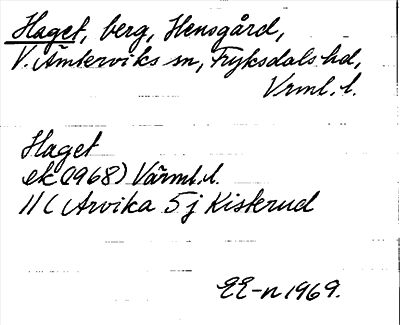 Haget, berg, Hensgård,
V. Ämterviks sn, Fryksdals hd,
Vrml. l.
Haget
ek (1968) Värml. l.
11 C Arvika 5 j Kisterud
EE-n 1969.